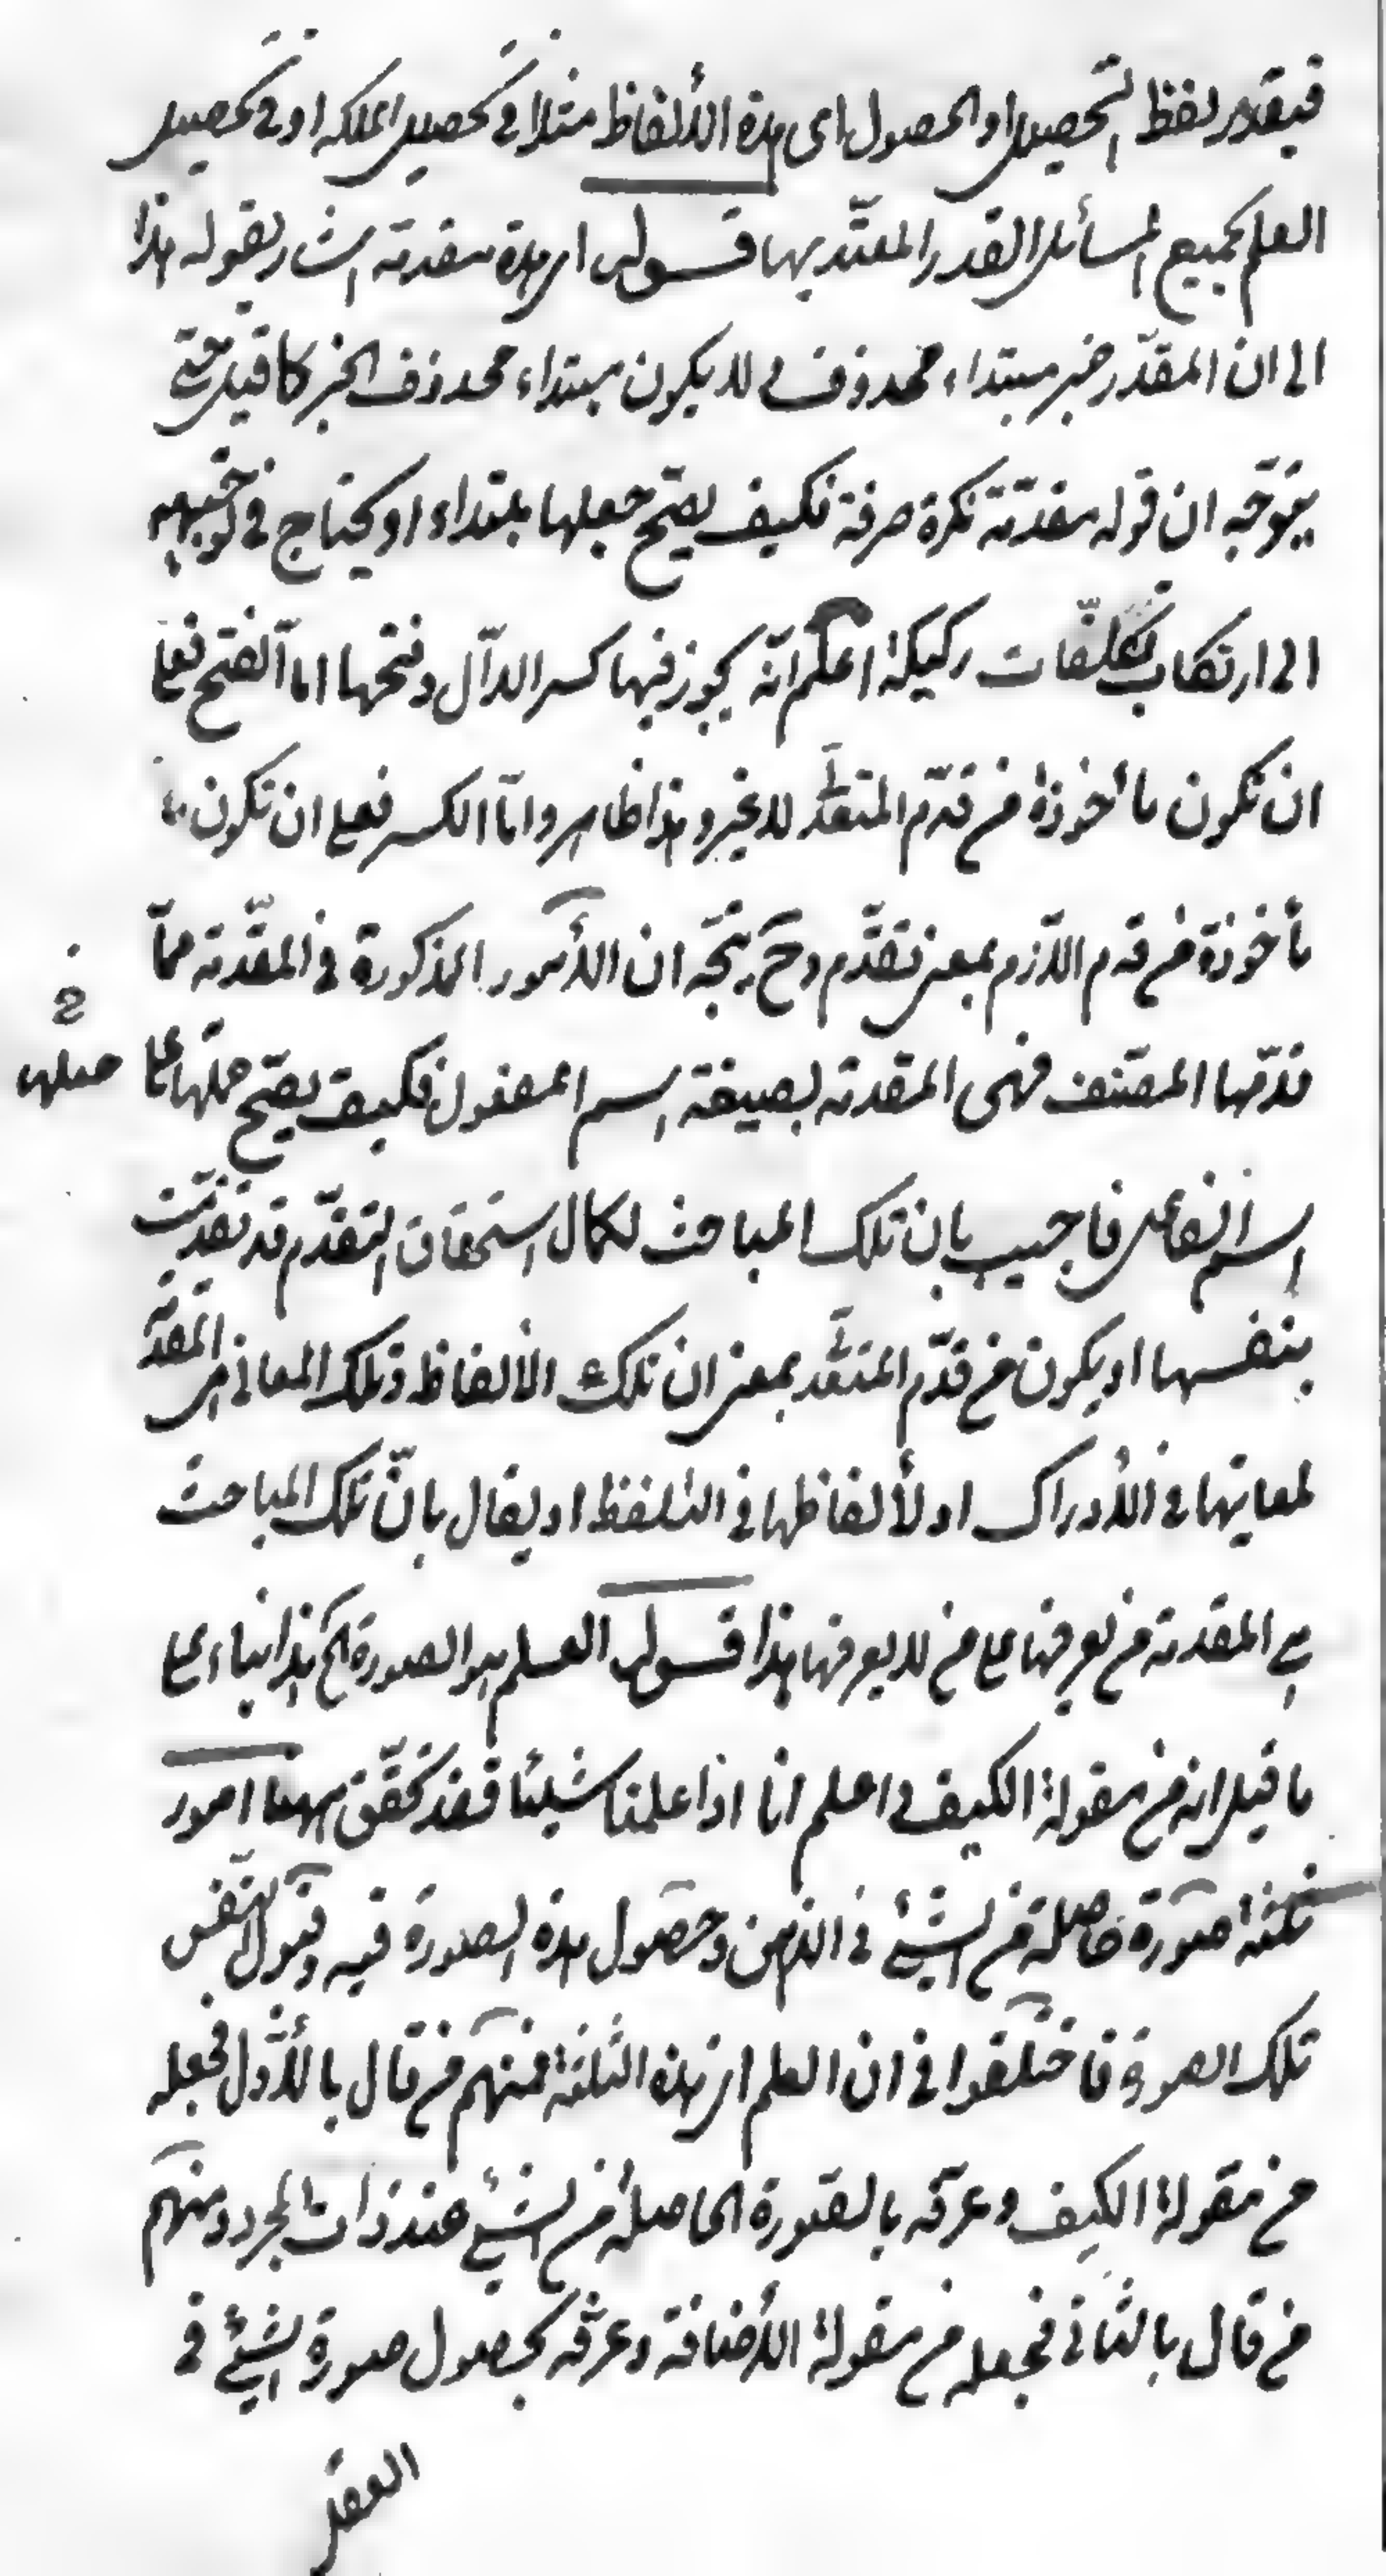 فيقدر لفظ التحصيل او الحصول اى هذه الألفاظ مثلا فى تحصيل الملكه او فى تحصيل
العلم بجميع المسائل او القدر المعتد بها قوله اى هذه مقدمة اشار بقوله هذا
الى ان المقدّر خبر مبتداء محذوف لا ان يكون مبتداء محذوف الخبر كما قيل حتى
يتوجّه ان قوله مقدّمة نكرة صرفة فكيف يصحّ جعلها مبتداء او يحتاج فى توجيهه
الى ارتكاب تكلّفات ركيكة اعلم انّه يجوز فيها كسر الدال وفتحها امّا الفتح فعلى
ان تكون مأخوذة من قدّم المتعدّى للغير وهذا ظاهر وامّا الكسر فعلى ان تكون
مأخوذة من قدم اللازم بمعنى تقدّم وح يتّجه ان الأمور المذكورة فى المقدّمة ممّا
قدّمها المصنّف فهى المقدمة بصيغة اسم المفعول فكيف يصحّ حملها على
حملها
اسم الفاعل فاجيب بان تلك المباحث لكمال استحقاق التقدّم قد تقدّمت
بنفسها او يكون من قدّم المتعدى بمعنى ان تلك الألفاظ وتلك المعانى هى المقدّمة
لمعانيها فى الأدراك او لألفاظها فى التلفظ او يقال بانّ تلك المباحث
هى المقدمة من يعرفها على من لا يعرفها هذا قوله العلم هو الصورة الخ هذا بناء على
ما قيل انه من مقولة الكيف اعلم انا اذا علمنا شيئا فقد تحقّق ههنا امور
ثلثة صورة حاصلة من الشيئ فى الذهن وحصول هذه الصورة فيه وقبول النّفس
تلك الصورة فاختلفوا فى ان العلم اى هذه الثلثة فمنهم من قال بالأوّل فجعله
من مقولة الكيف وعرفه بالصورة الحاصلة من الشيئ عند ذات المجرد ومنهم
من قال بالثانى فجعله من مقولة الأضافة وعرّفه بحصول صورة الشيئ فى
العقل